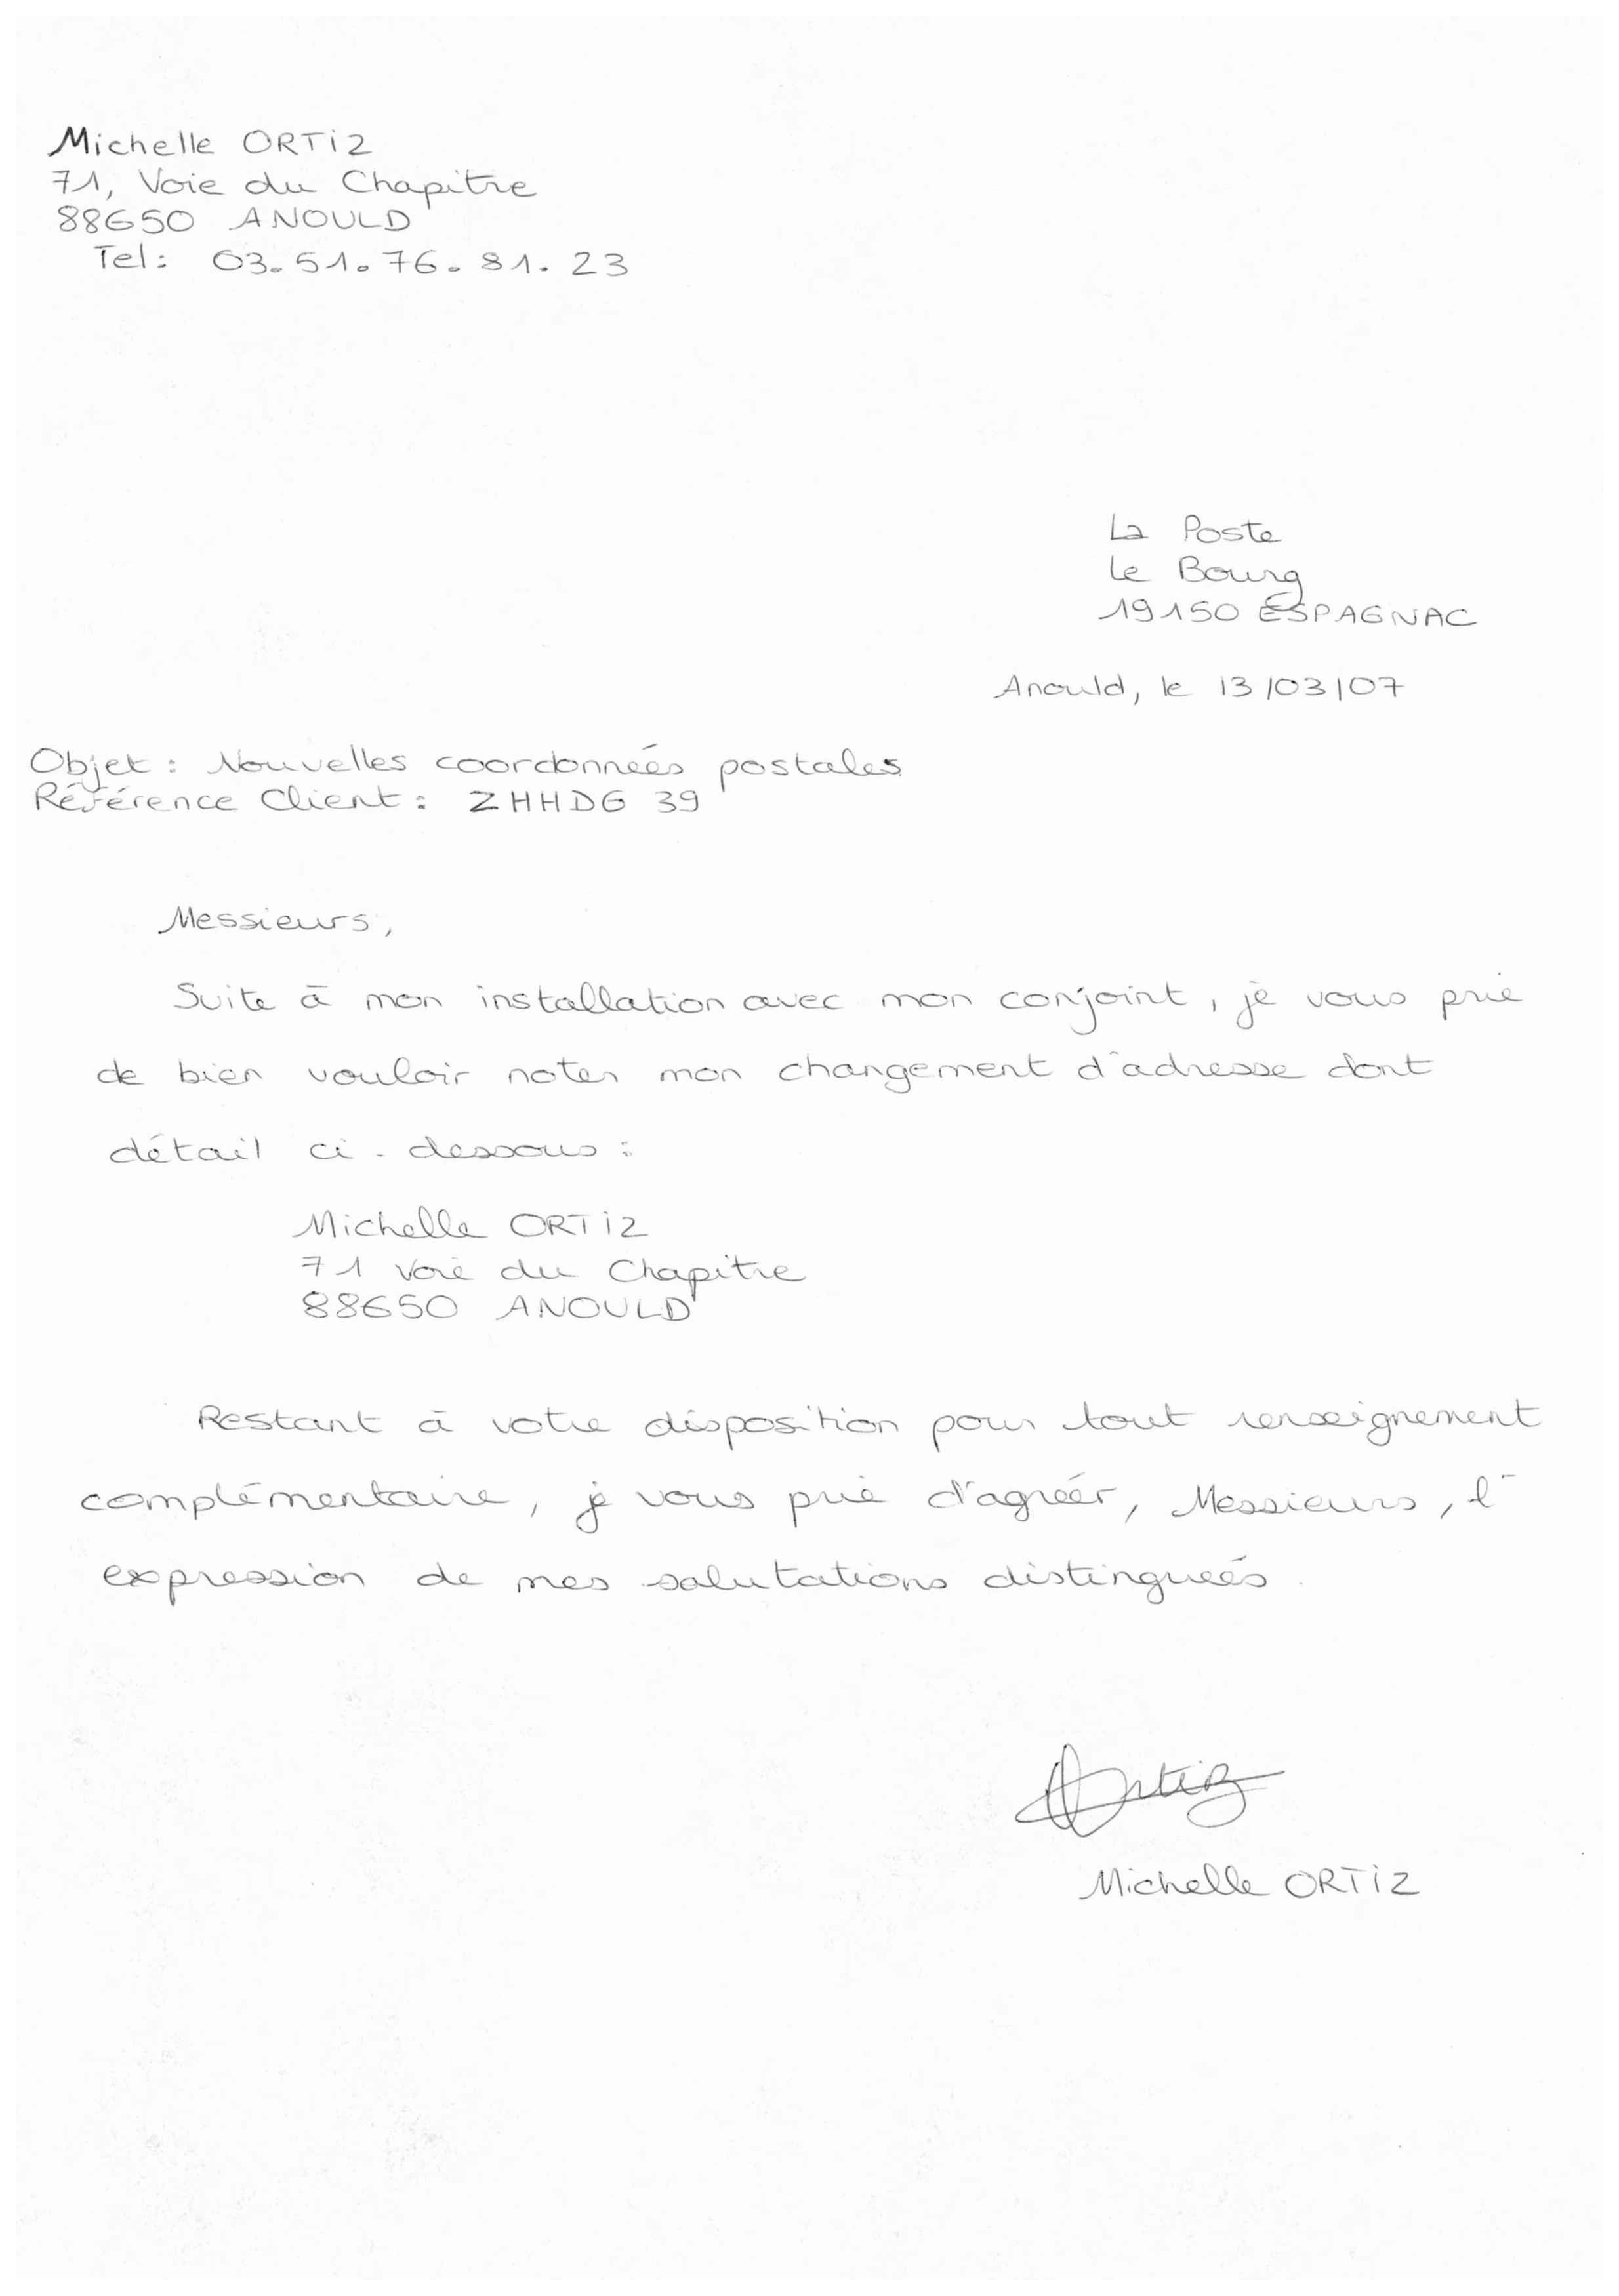 Michelle ORTiZ
71, Voie du Chapitre
88650 ANOULD
Tel: 03.51.76.81.23
La Poste
Le Bourg
19150 ESPAGNAC
Anould, le 13/03/07
Objet : Nouvelles coordonnées postales
Référence Client : ZHHDG 39
Messieurs,
Suite à mon installation avec mon conjoint, je vous prie
de bien vouloir noter mon changement d'adresse dont
détail ci-dessous :
Michelle ORTiZ
71 Voie du Chapitre
88650 ANOULD
Restant à votre disposition pour tout renseignement
complémentaire, je vous prie d'agréer, Messieurs, l'
expression de mes salutations distinguées.
Ortiz
Michelle ORTiZ